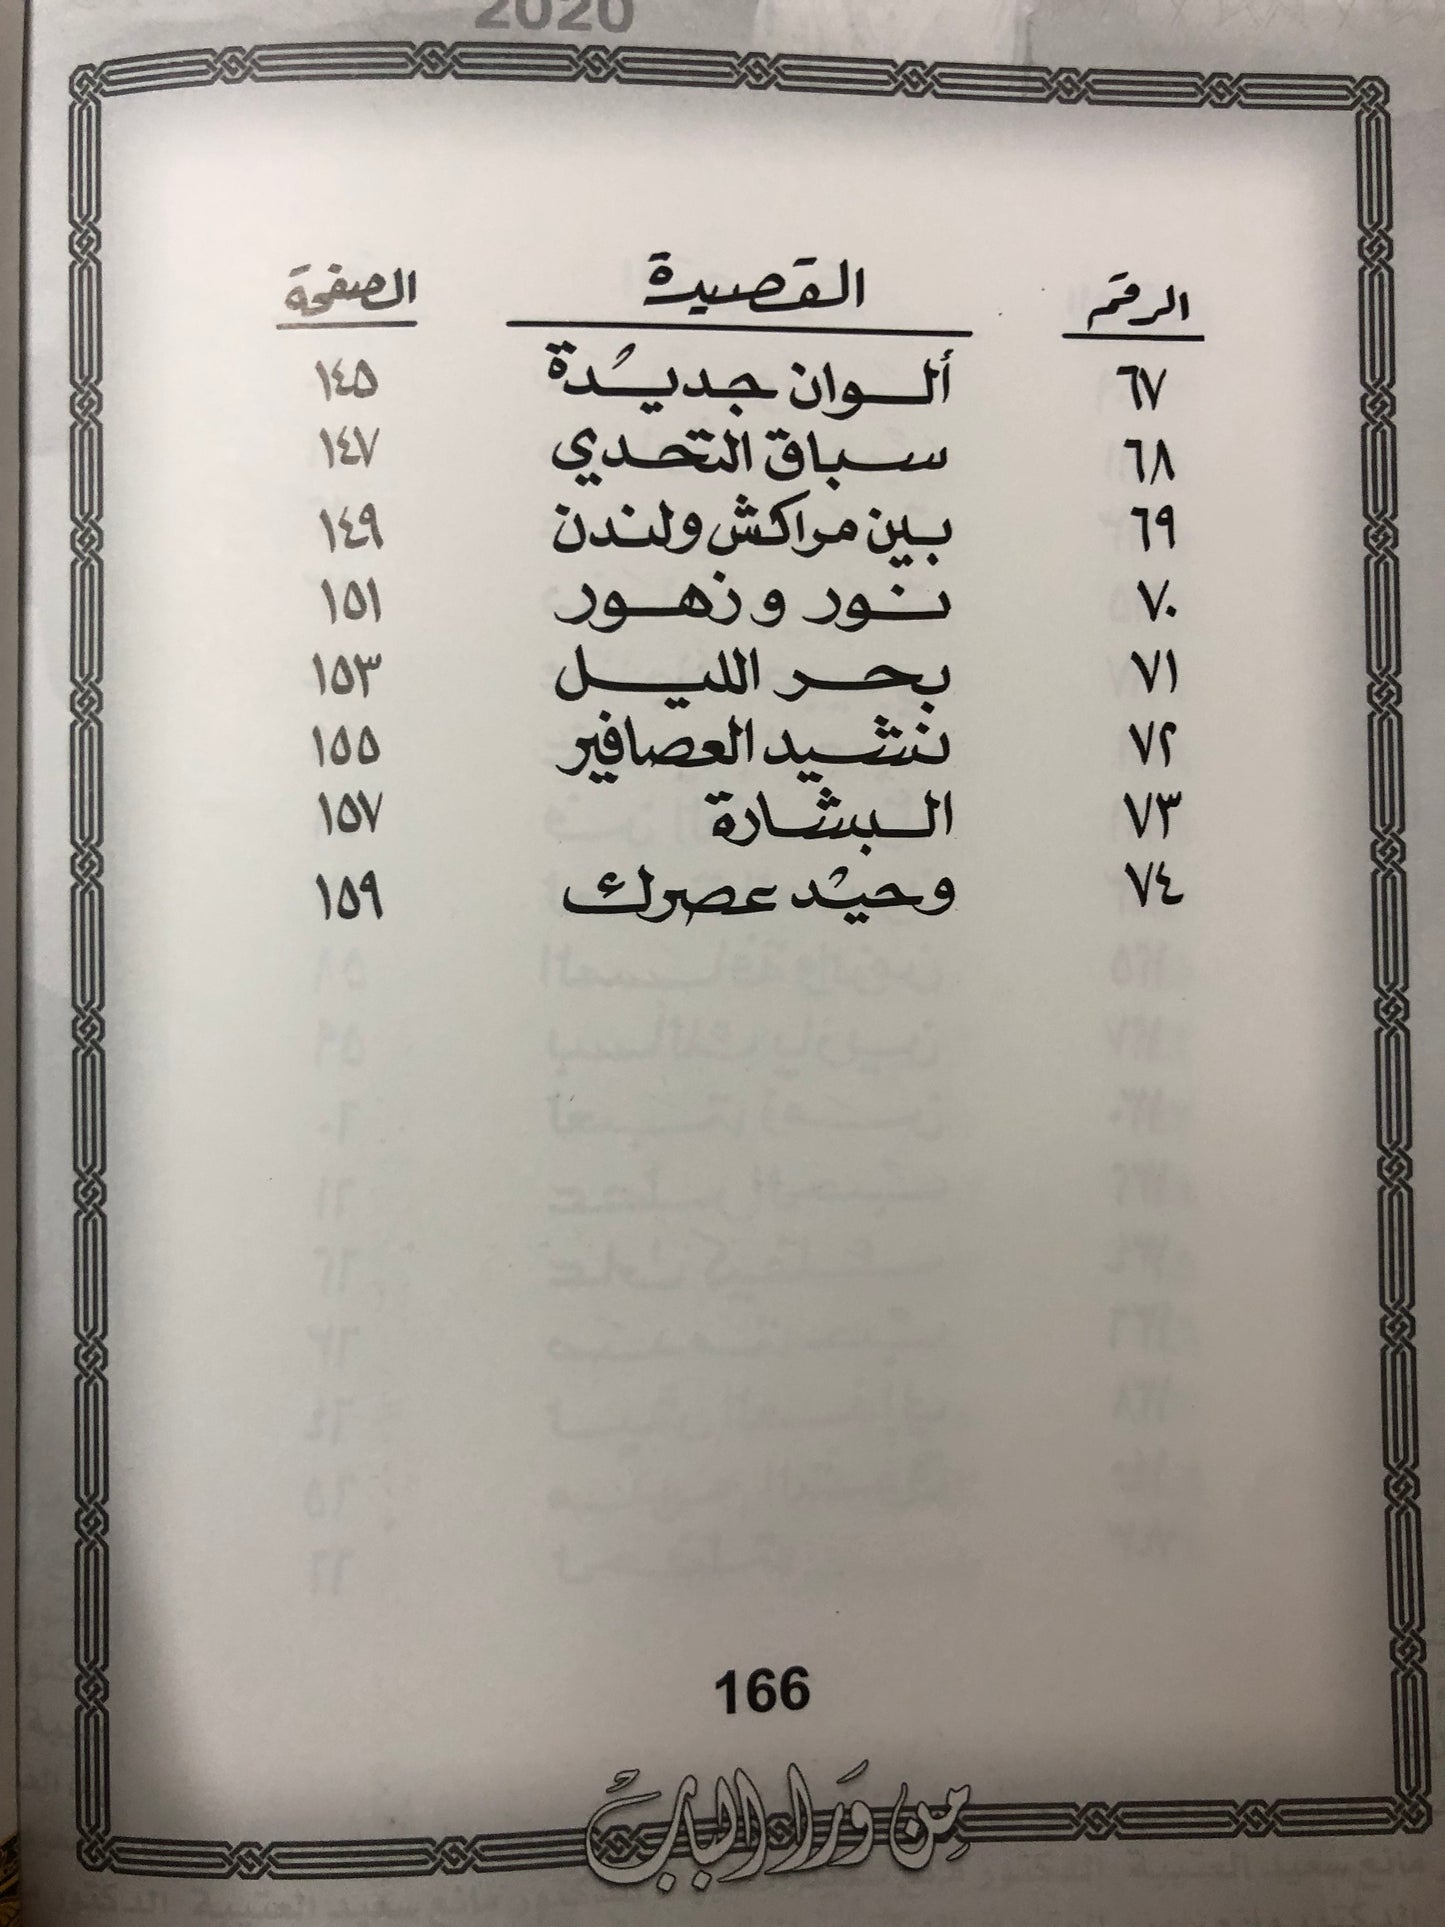 2020
الرقم القصيدة الصفحة
٦٧ ألوان جديدة ١٤٥
٦٨ سباق التحدي ١٤٧
٦٩ بين مراكش ولندن ١٤٩
٧٠ نور وزهور ١٥١
٧١ بحر الليل ١٥٣
٧٢ نشيد العصافير ١٥٥
٧٣ البشارة ١٥٧
٧٤ وحيْد عصرك ١٥٩
166
مِن وَرا الباب